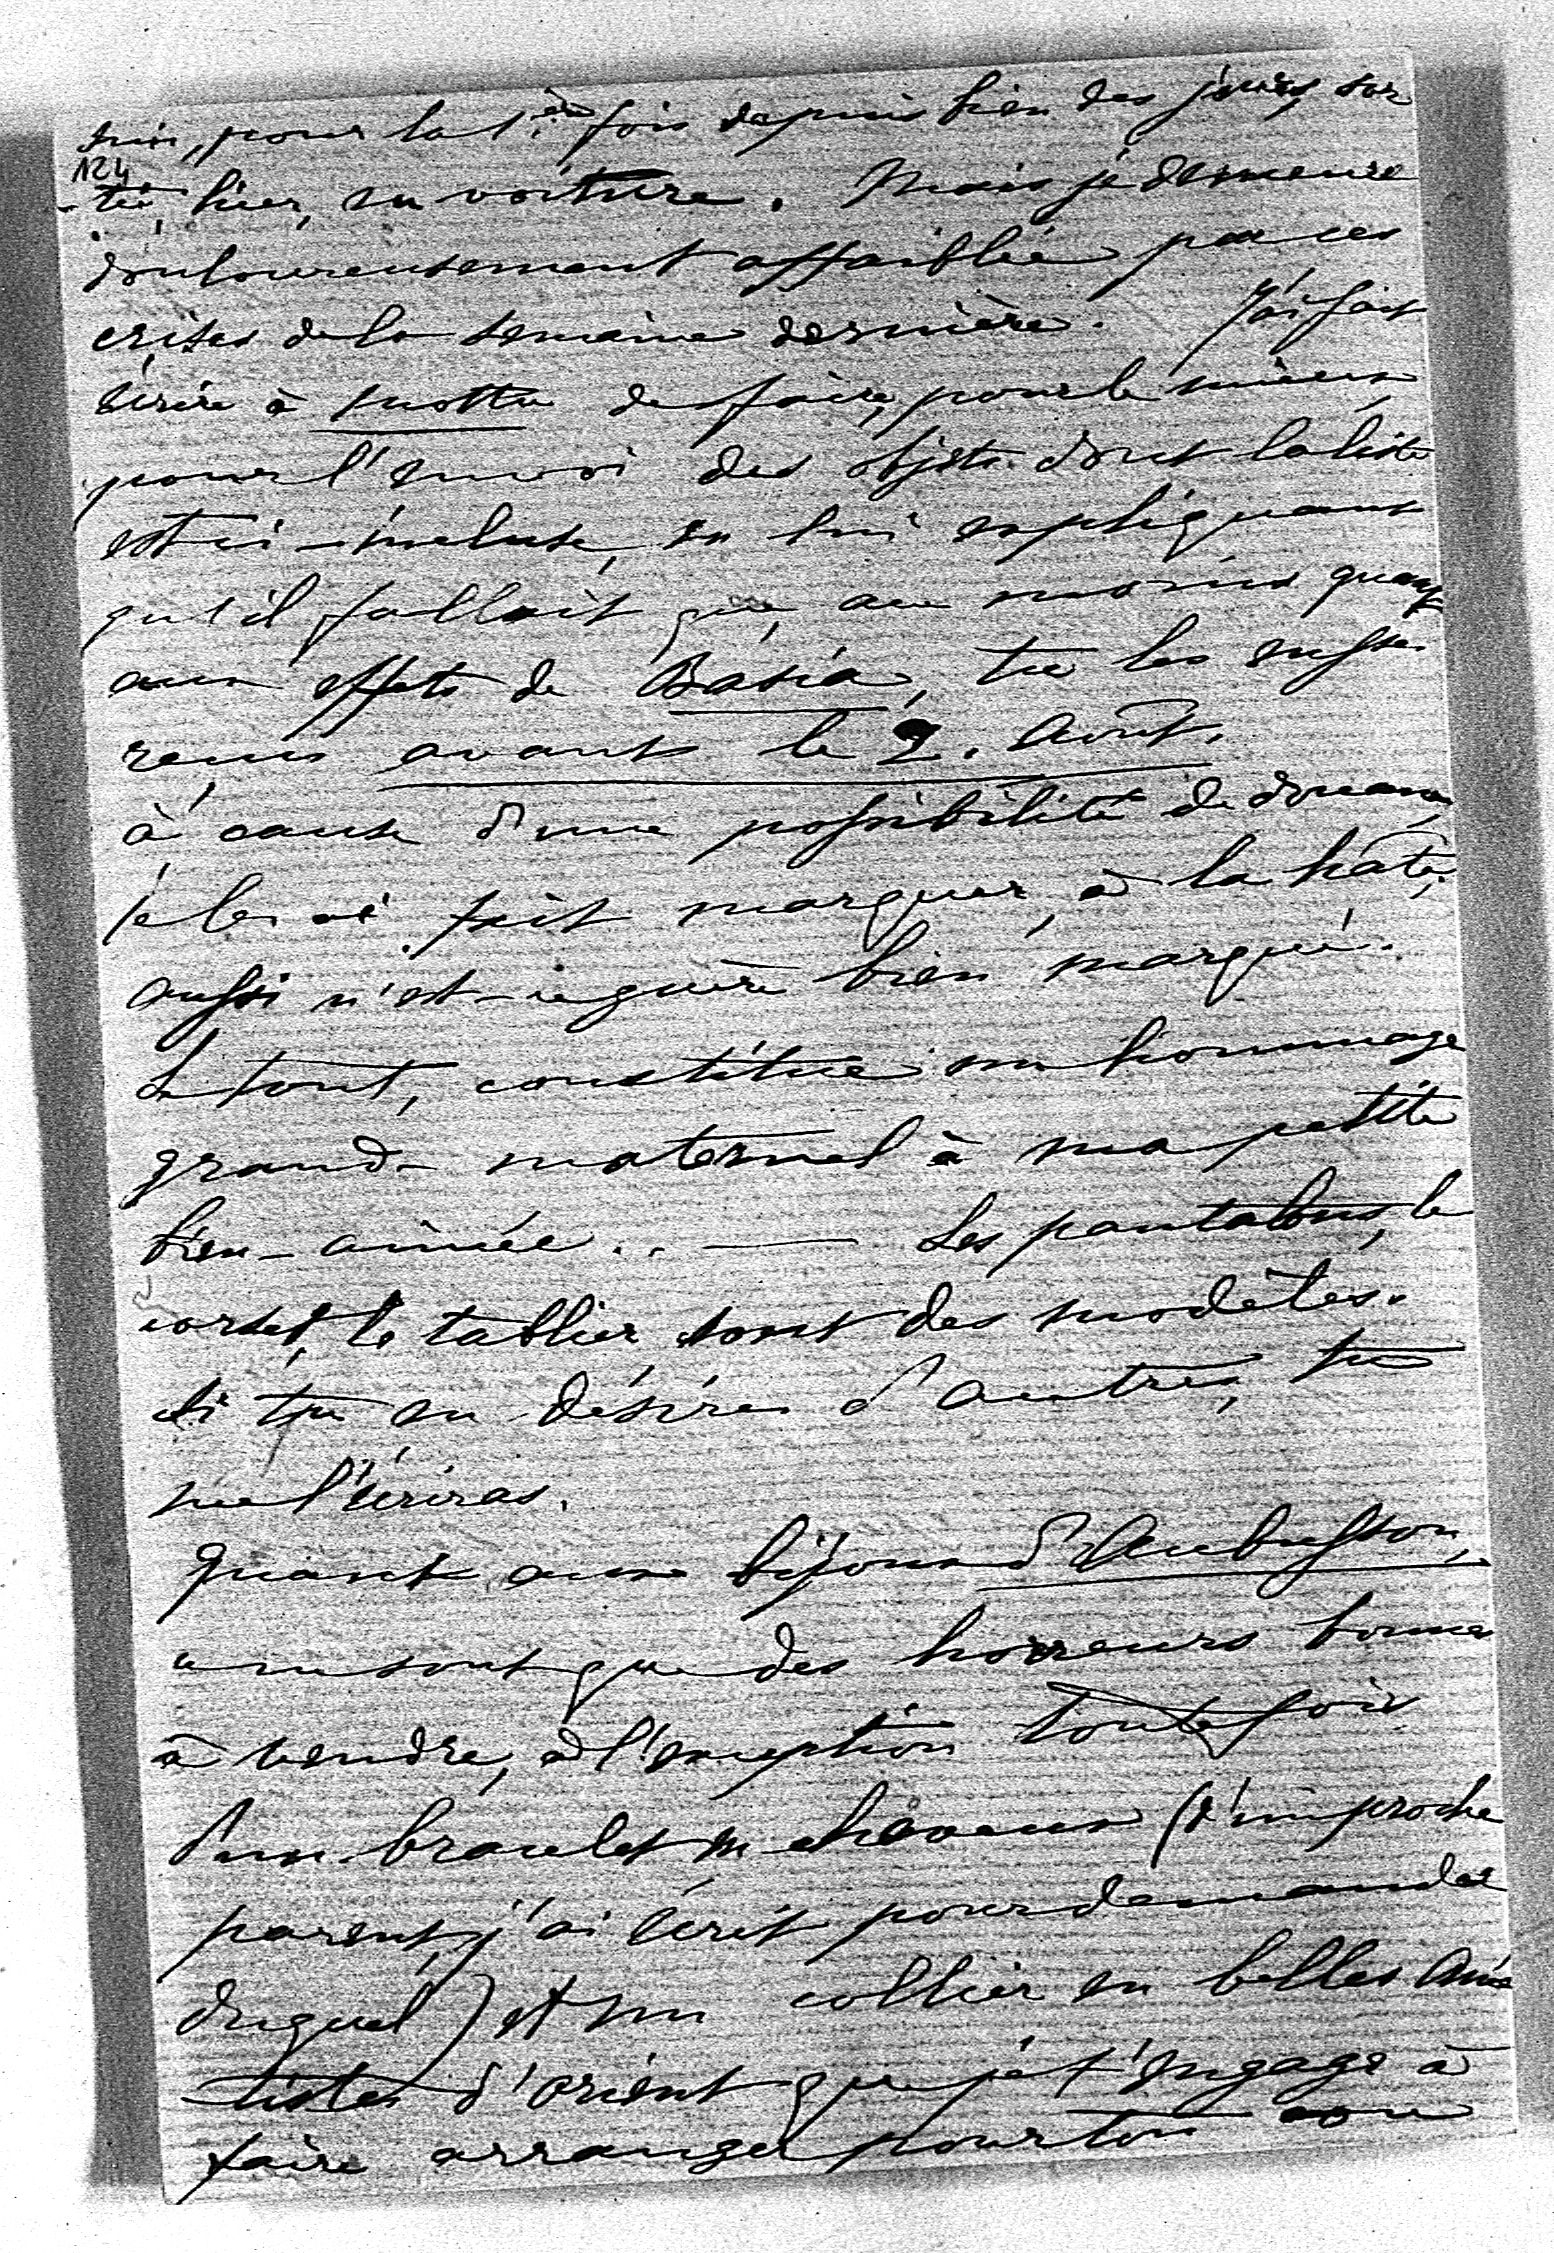 suis, pour la 1ère fois depuis bien des jours, sor
124
-tie, hier, en voiture. Mais je demeure
douloureusement affaiblie par ces
crises de la semaine dernière. J'ai fait
écrire à Motta de faire, pour le mieux
pour l'envoi des objets dont la liste
est ci-incluse, en lui expliquant
qu'il fallait que, au moins quant
aux effets de Basia, tu les eusses
reçus avant le 2. Août.
à cause d'une possibilité de douane
je les ai fait marquer, à la hâte,
aussi n'est-ce guère bien marqué.
Le tout, constitue un hommage
grand-maternel à ma petite
bien-aimée.. — Les pantalons, le
corset, le tablier sont des modèles.
Si tu en désires d'autres, tu
me l'écriras.
Quant aux bijoux d'Aubusson,
ce ne sont que des horreurs bonnes
à vendre, à l'exception toutefois
d'un bracelet en cheveux (d'un proche
parent, j'ai écrit pour demander
duquel) et un collier en belles Amé
tistes d'orient que je t'engage à
faire arranger pour ton cou